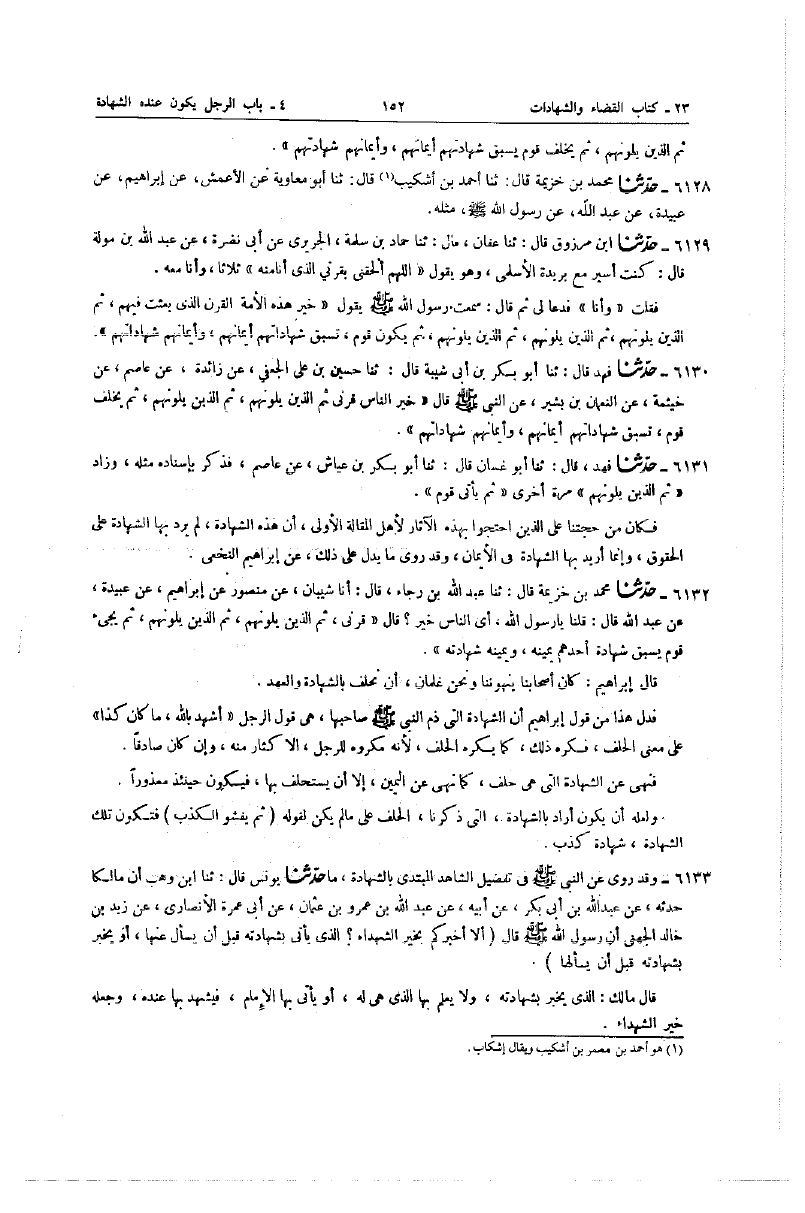 ٢٣ ـ كتاب القضاء والشهادات ١٥٢ ٤ ـ باب الرجل يكون عنده الشهادة
ثم الذين يلونهم ، ثم يخلف قوم يسبق شهادتهم أيمانهم ، وأيمانهم شهادتهم » .
٦١٢٨ ـ حدّثنا محمد بن خزيمة قال: ثنا أحمد بن أشكيب(١) قال: ثنا أبو معاوية عن الأعمش، عن إبراهيم، عن
عبيدة، عن عبد الله، عن رسول الله ﷺ، مثله.
٦١٢٩ ـ حدّثنا ابن مرزوق قال : ثنا عفان ، قال : ثنا حماد بن سلمة ، الجريرى عن أبى نضرة ، عن عبد الله بن مولة
قال : كنت أسير مع بريدة الأسلمى ، وهو يقول « اللهم ألحقنى بقرني الذى أنامنه » ثلاثا ، وأنا معه .
فقلت « وأنا » فدعا لى ثم قال : سمعت رسول الله ﷺ يقول « خير هذه الأمة القرن الذى بعثت فيهم ، ثم
الذين يلونهم ، ثم الذين يلونهم ، ثم الذين يلونهم ، ثم يكون قوم ، تسبق شهاداتهم أيمانهم ، وأيمانهم شهاداتهم ».
٦١٣٠ ـ حدّثنا فهد قال : ثنا أبو بكر بن أبى شيبة قال : ثنا حسين بن على الجعفي ، عن زائدة ، عن عاصم ، عن
خيثمة ، عن النعمان بن بشير ، عن النبى ﷺ قال « خير الناس قرنى ثم الذين يلونهم ، ثم الذين يلونهم ، ثم يخلف
قوم ، تسبق شهاداتهم أيمانهم ، وأيمانهم شهاداتهم » .
٦١٣١ ـ حدّثنا فهد ، قال : ثنا أبو غسان قال : ثنا أبو بكر بن عياش ، عن عاصم ، فذكر بإسناده مثله ، وزاد
« ثم الذين يلونهم » مرة أخرى « ثم يأتى قوم » .
فكان من حجتنا على الذين احتجوا بهذه الآثار لأهل المقالة الأولى ، أن هذه الشهادة ، لم يرد بها الشهادة على
الحقوق ، وإنما أريد بها الشهادة فى الأيمان ، وقد روى ما يدل على ذلك ، عن إبراهيم النخعى .
٦١٣٢ ـ حدّثنا محمد بن خزيمة قال : ثنا عبد الله بن رجاء ، قال : أنا شيبان ، عن منصور عن إبراهيم ، عن عبيدة ،
عن عبد الله قال : قلنا يارسول الله ، أى الناس خير ؟ قال « قرنى ، ثم الذين يلونهم ، ثم الذين يلونهم ، ثم يجىء
قوم يسبق شهادة أحدهم يمينه ، ويمينه شهادته » .
قال إبراهيم : كان أصحابنا ينهوننا ونحن غلمان ، أن نحلف بالشهادة والعهد .
فدل هذا من قول إبراهيم أن الشهادة التى ذم النبى ﷺ صاحبها ، هى قول الرجل « أشهد بالله ، ما كان كذا»
على معنى الحلف ، فكره ذلك ، كما يكره الحلف ، لأنه مكروه للرجل ، الاكثار منه ، وإن كان صادقاً .
فنهى عن الشهادة التى هى حلف ، كما نهى عن اليمين ، إلا أن يستحلف بها ، فيكون حينئذ معذوراً .
ولعله أن يكون أراد بالشهادة ، التى ذكرنا ، الحلف على مالم يكن لقوله ( ثم يفشو الكذب ) فتكون تلك
الشهادة ، شهادة كذب .
٦١٣٣ ـ وقد روى عن النبى ﷺ فى تفضيل الشاهد المبتدى بالشهادة ، ما حدّثنا يونس قال : ثنا ابن وهب أن مالكا
حدثه ، عن عبدالله بن أبى بكر ، عن أبيه ، عن عبد الله بن عمرو بن عثمان ، عن أبى عمرة الأنصارى ، عن زيد بن
خالد الجهنى أن رسول الله ﷺ قال ( ألا أخبركم بخير الشهداء ؟ الذى يأتى بشهادته قبل أن يسأل عنها ، أو يخبر
بشهادته قبل أن يسألها ) .
قال مالك : الذى يخبر بشهادته ، ولا يعلم بها الذى هى له ، أو يأتى بها الإمام ، فيشهد بها عنده ، وجعله
خير الشهداء .
(١) هو أحمد بن معمر بن أشكيب ويقال إشكاب .